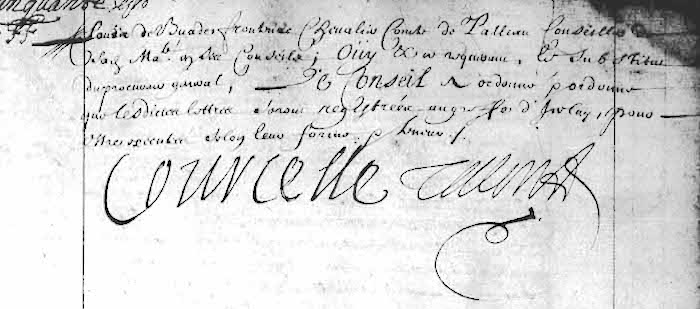 Louis de Buade frontenac Chevalier Comte de Palleau Conseiller
Maté Conseils, Ouy & ce requerant, Le Substitut
du procureur general, Le Conseil A ordonné & ordonne
que lesdictes lettres seront registrées au greffe d'Iceluy, pour
estre executées selon leur forme & teneur /.
Courcelle Talon